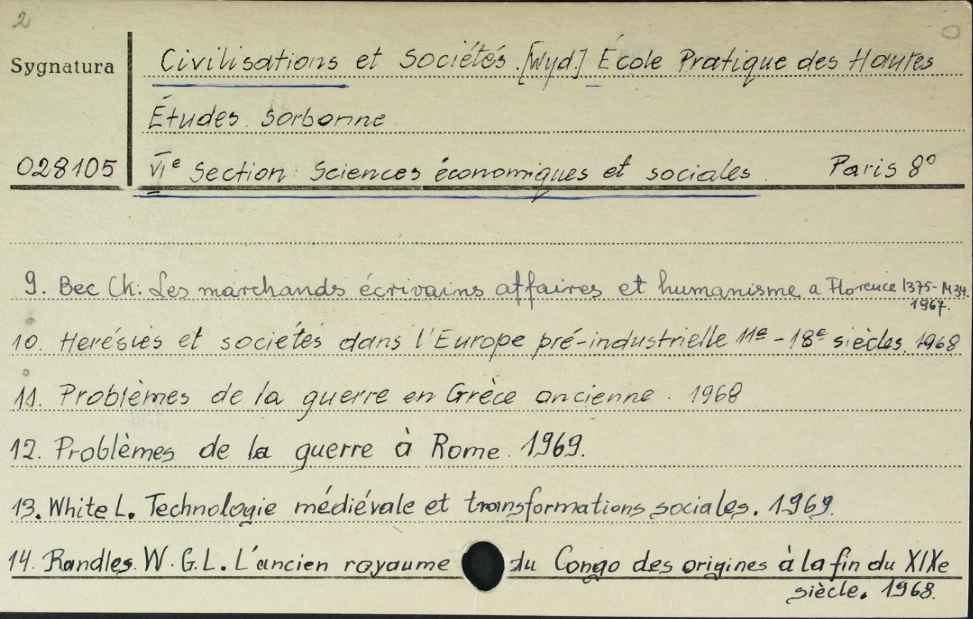 2
Sygnatura
Civilisations et Sociétés. [Wyd.] École Pratique des Hautes
Études Sorbonne
028105
VIe Section Sciences économiques et sociales. Paris 8°
9. Bec Ch. Les marchands écrivains affaires et humanisme a Florence 1375-1434.
1967.
10. Herésies et sociétés dans l'Europe pré-industrielle 11e - 18e siècles. 1968
11. Problèmes de la guerre en Grèce ancienne. 1968
12. Problèmes de la guerre à Rome. 1969.
13. White L. Technologie médiévale et transformations sociales. 1969.
14. Randles W.G.L. L'ancien royaume du Congo des origines à la fin du XIXe
siècle. 1968.